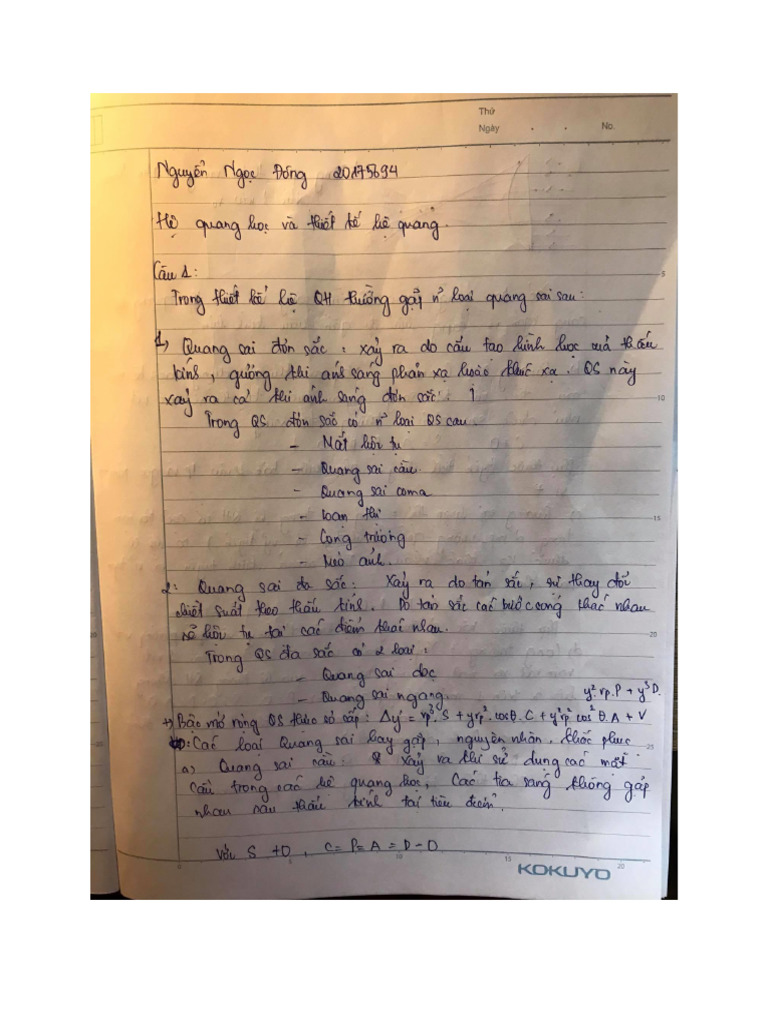 Thứ
Ngày . . No.
Nguyễn Ngọc Đông 20175694
Hệ quang học và thiết kế hệ quang.
Câu 1:
Trong thiết kế hệ QH thường gặp n~ loại quang sai sau:
1, Quang sai đơn sắc: xảy ra do cấu tạo hình học của thấu
kính, gương khi ánh sáng phản xạ hoặc khúc xạ. QS này
xảy ra cả khi ánh sáng đơn sắc.
Trong QS đơn sắc có n~ loại QS sau
- Mất hội tụ
- Quang sai cầu.
- Quang sai coma
- Loạn thị
- Cong trường
- Méo ảnh.
2: Quang sai đa sắc: Xảy ra do tán sắc, sự thay đổi
chiết suất theo thấu kính. Do tán sắc các bước sóng khác nhau
sẽ hội tụ tại các điểm khác nhau.
Trong QS đa sắc có 2 loại:
- Quang sai dọc
- Quang sai ngang. y² rp.P + y³ D.
+) Bậc mở rộng QS theo sơ cấp: Δy' = rp³.S + yrp².cosθ.C + y²rp²cos²θ.A + V
Các loại Quang sai hay gặp, nguyên nhân, khắc phục
a) Quang sai cầu: Xảy ra khi sử dụng các mặt
cầu trong các hệ quang học, Các tia sáng không gặp
nhau sau thấu kính tại tiêu điểm.
Với S ≠ 0, C = P = A = D = 0
KOKUYO
5
10
15
20
25
10
15
20